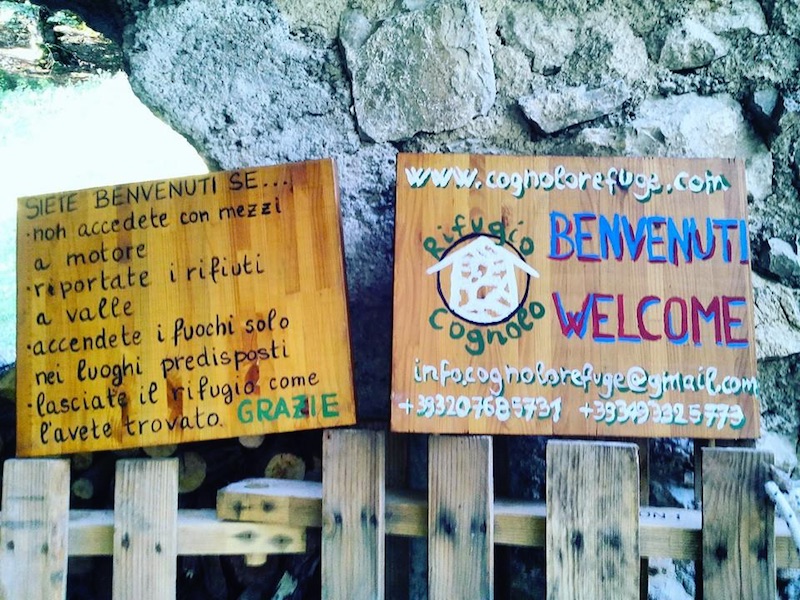 SIETE BENVENUTI SE....
• non accedete con mezzi
a motore
• riportate i rifiuti
a valle
• accendete i fuochi solo
nei luoghi predisposti
• lasciate il rifugio come
l'avete trovato. GRAZIE
www.cognolorefuge.com
Rifugio
Cognolo
BENVENUTI
WELCOME
info.cognolorefuge@gmail.com
+393207685731 +393493325773